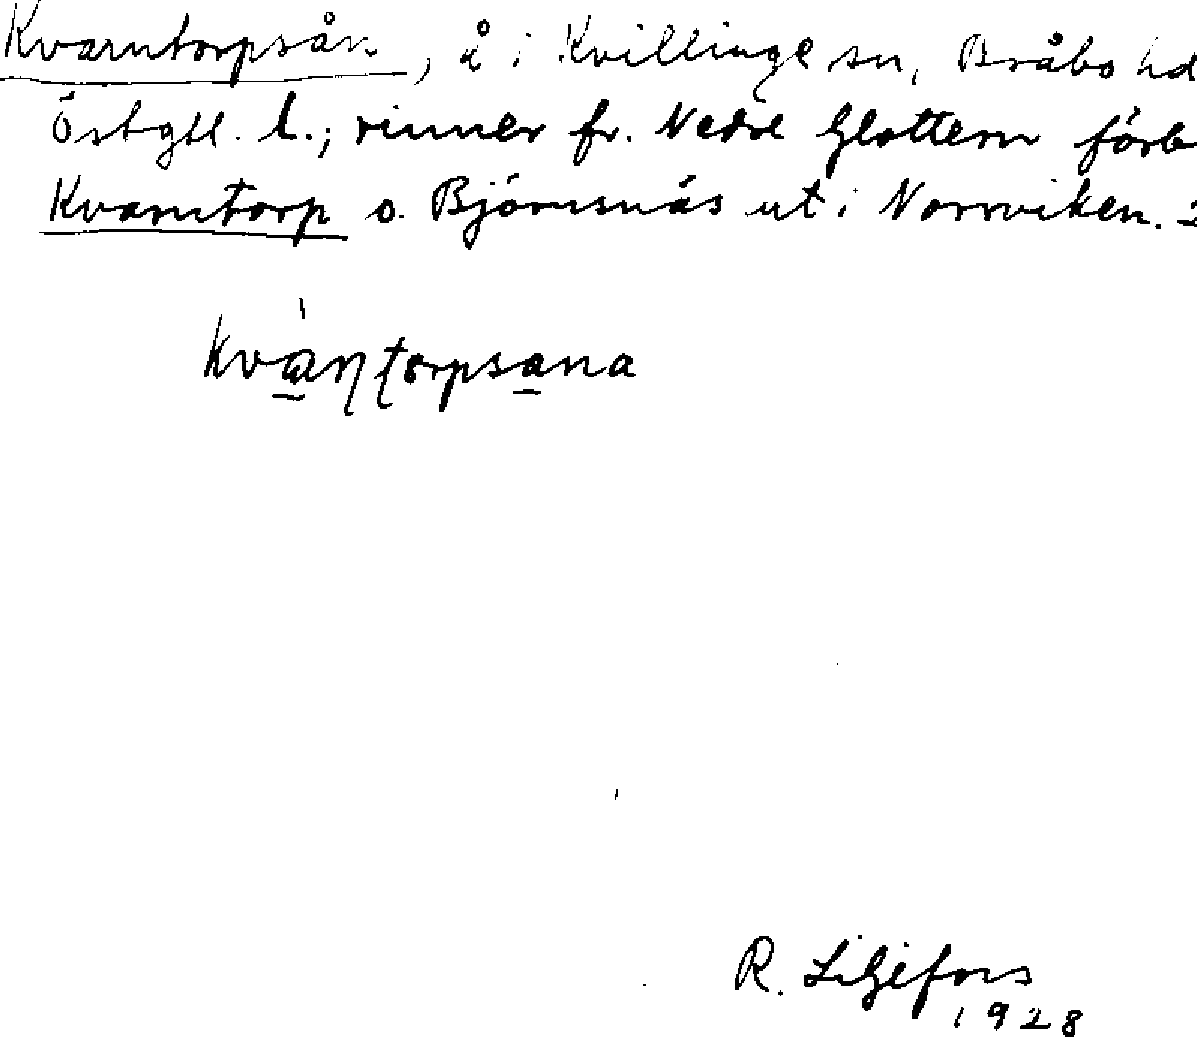 Kvarntorpsån, å i Kvillinge sn, Bråbo hd
Östgtl. l.; rinner fr. Nedre Glottern förb
Kvarntorp o. Björnsnäs ut i Norrviken.
Kvàṇṭorpsana
R. Liljefors
1928